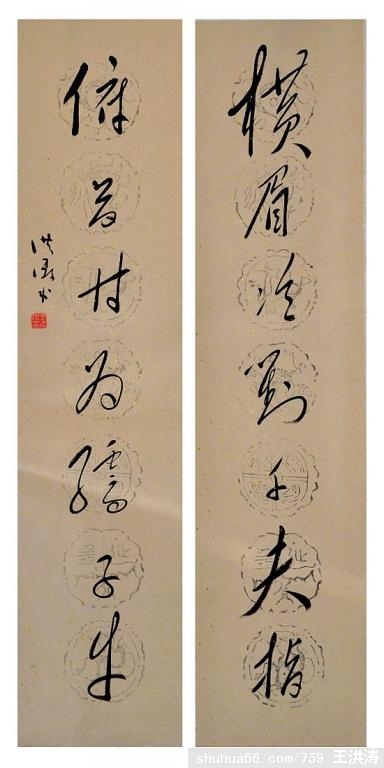 横眉冷對千夫指
俯首甘为孺子牛
洪涛书
shuhua66.com/759 王洪涛